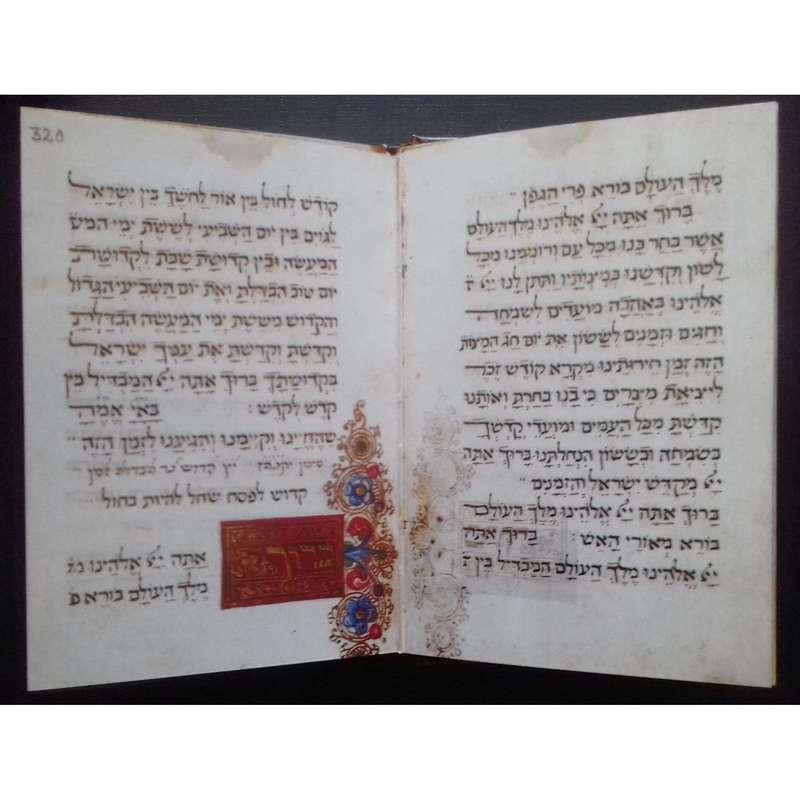 מֶלֶךְ הַעוֹלָם בּוֹרֵא פְּרִי הַגֶּפֶן
בָּרוּךְ אַתָּה יְיָ אֱלֹהֵינוּ מֶלֶךְ הָעוֹלָם
אֲשֶׁר בָּחַר בָּנוּ מִכָּל עַם וְרוֹמְמָנוּ מִכָּל
לָשׁוֹן וְקִדְּשָׁנוּ בְּמִצְוֹתָיו וַתִּתֵּן לָנוּ יְיָ
אֱלֹהֵינוּ בְּאַהֲבָה מוֹעֲדִים לְשִׂמְחָה
וְחַגִּים וּזְמַנִּים לְשָׂשׂוֹן אֶת יוֹם חַג הַמַּצּוֹת
הַזֶּה זְמַן חֵירוּתֵינוּ מִקְרָא קוֹדֶשׁ זֵכֶר
לִיצִיאַת מִצְרַיִם כִּי בָנוּ בָחַרְתָּ וְאוֹתָנוּ
קִדַּשְׁתָּ מִכָּל הָעַמִּים וּמוֹעֲדֵי קָדְשֶׁךָ
בְּשִׂמְחָה וּבְשָׂשׂוֹן הִנְחַלְתָּנוּ בָּרוּךְ אַתָּה
יְיָ מְקַדֵּשׁ יִשְׂרָאֵל וְהַזְּמַנִּים
בָּרוּךְ אַתָּה יְיָ אֱלֹהֵינוּ מֶלֶךְ הָעוֹלָם
בּוֹרֵא מְאוֹרֵי הָאֵשׁ : בָּרוּךְ אַתָּה
יְיָ אֱלֹהֵינוּ מֶלֶךְ הָעוֹלָם הַמַּבְדִּיל בֵּין
320
קוֹדֶשׁ לְחוֹל בֵּין אוֹר לְחֹשֶׁךְ בֵּין יִשְׂרָאֵל
לַגּוֹיִם בֵּין יוֹם הַשְּׁבִיעִי לְשֵׁשֶׁת יְמֵי הַמַּעֲ
הַמַּעֲשֶׂה וּבֵין קְדוּשַּׁת שַׁבָּת לִקְדוּשַּׁת
יוֹם טוֹב הִבְדַּלְתָּ וְאֶת יוֹם הַשְּׁבִיעִי הַגָּדוֹל
וְהַקָּדוֹשׁ מִשֵּׁשֶׁת יְמֵי הַמַּעֲשֶׂה הִבְדַּלְתָּ
וְקִדַּשְׁתָּ וְקִדַּשְׁתָּ אֶת עַמְּךָ יִשְׂרָאֵל
בִּקְדוּשָּׁתָךְ בָּרוּךְ אַתָּה יְיָ הַמַּבְדִּיל בֵּין
קֹדֶשׁ לְקֹדֶשׁ : בָּאַ״י אֱמֶ״הָ
שֶׁהֶחֱיָנוּ וְקִיְּמָנוּ וְהִגִּיעָנוּ לַזְּמַן הַזֶּה
סימן יקנה״ז יין קדוש נר הבדלה זמן
קדוש לפסח שחל להיות בחול
בָּרוּךְ
אַתָּה יְיָ אֱלֹהֵינוּ
מֶלֶךְ הָעוֹלָם בּוֹרֵא